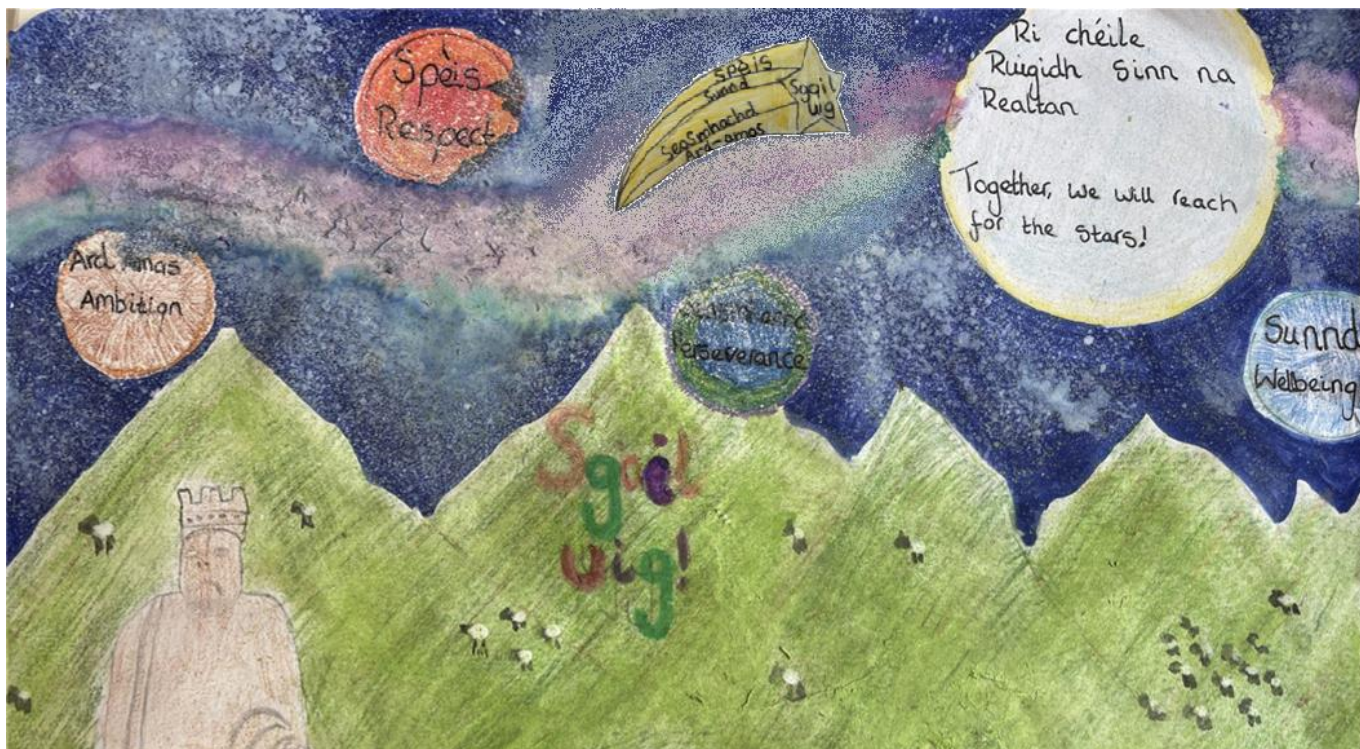 Spèis
Respect
Spèis
Sunnd
Seasmhachd
Ard-amas
Sgoil
Uig
Ri chéile
Ruigidh Sinn na
Realtan
Together, we will reach
for the stars!
Ard
Ambition
Perseverance
Sunnd
Wellbeing
Sgoil
uig!